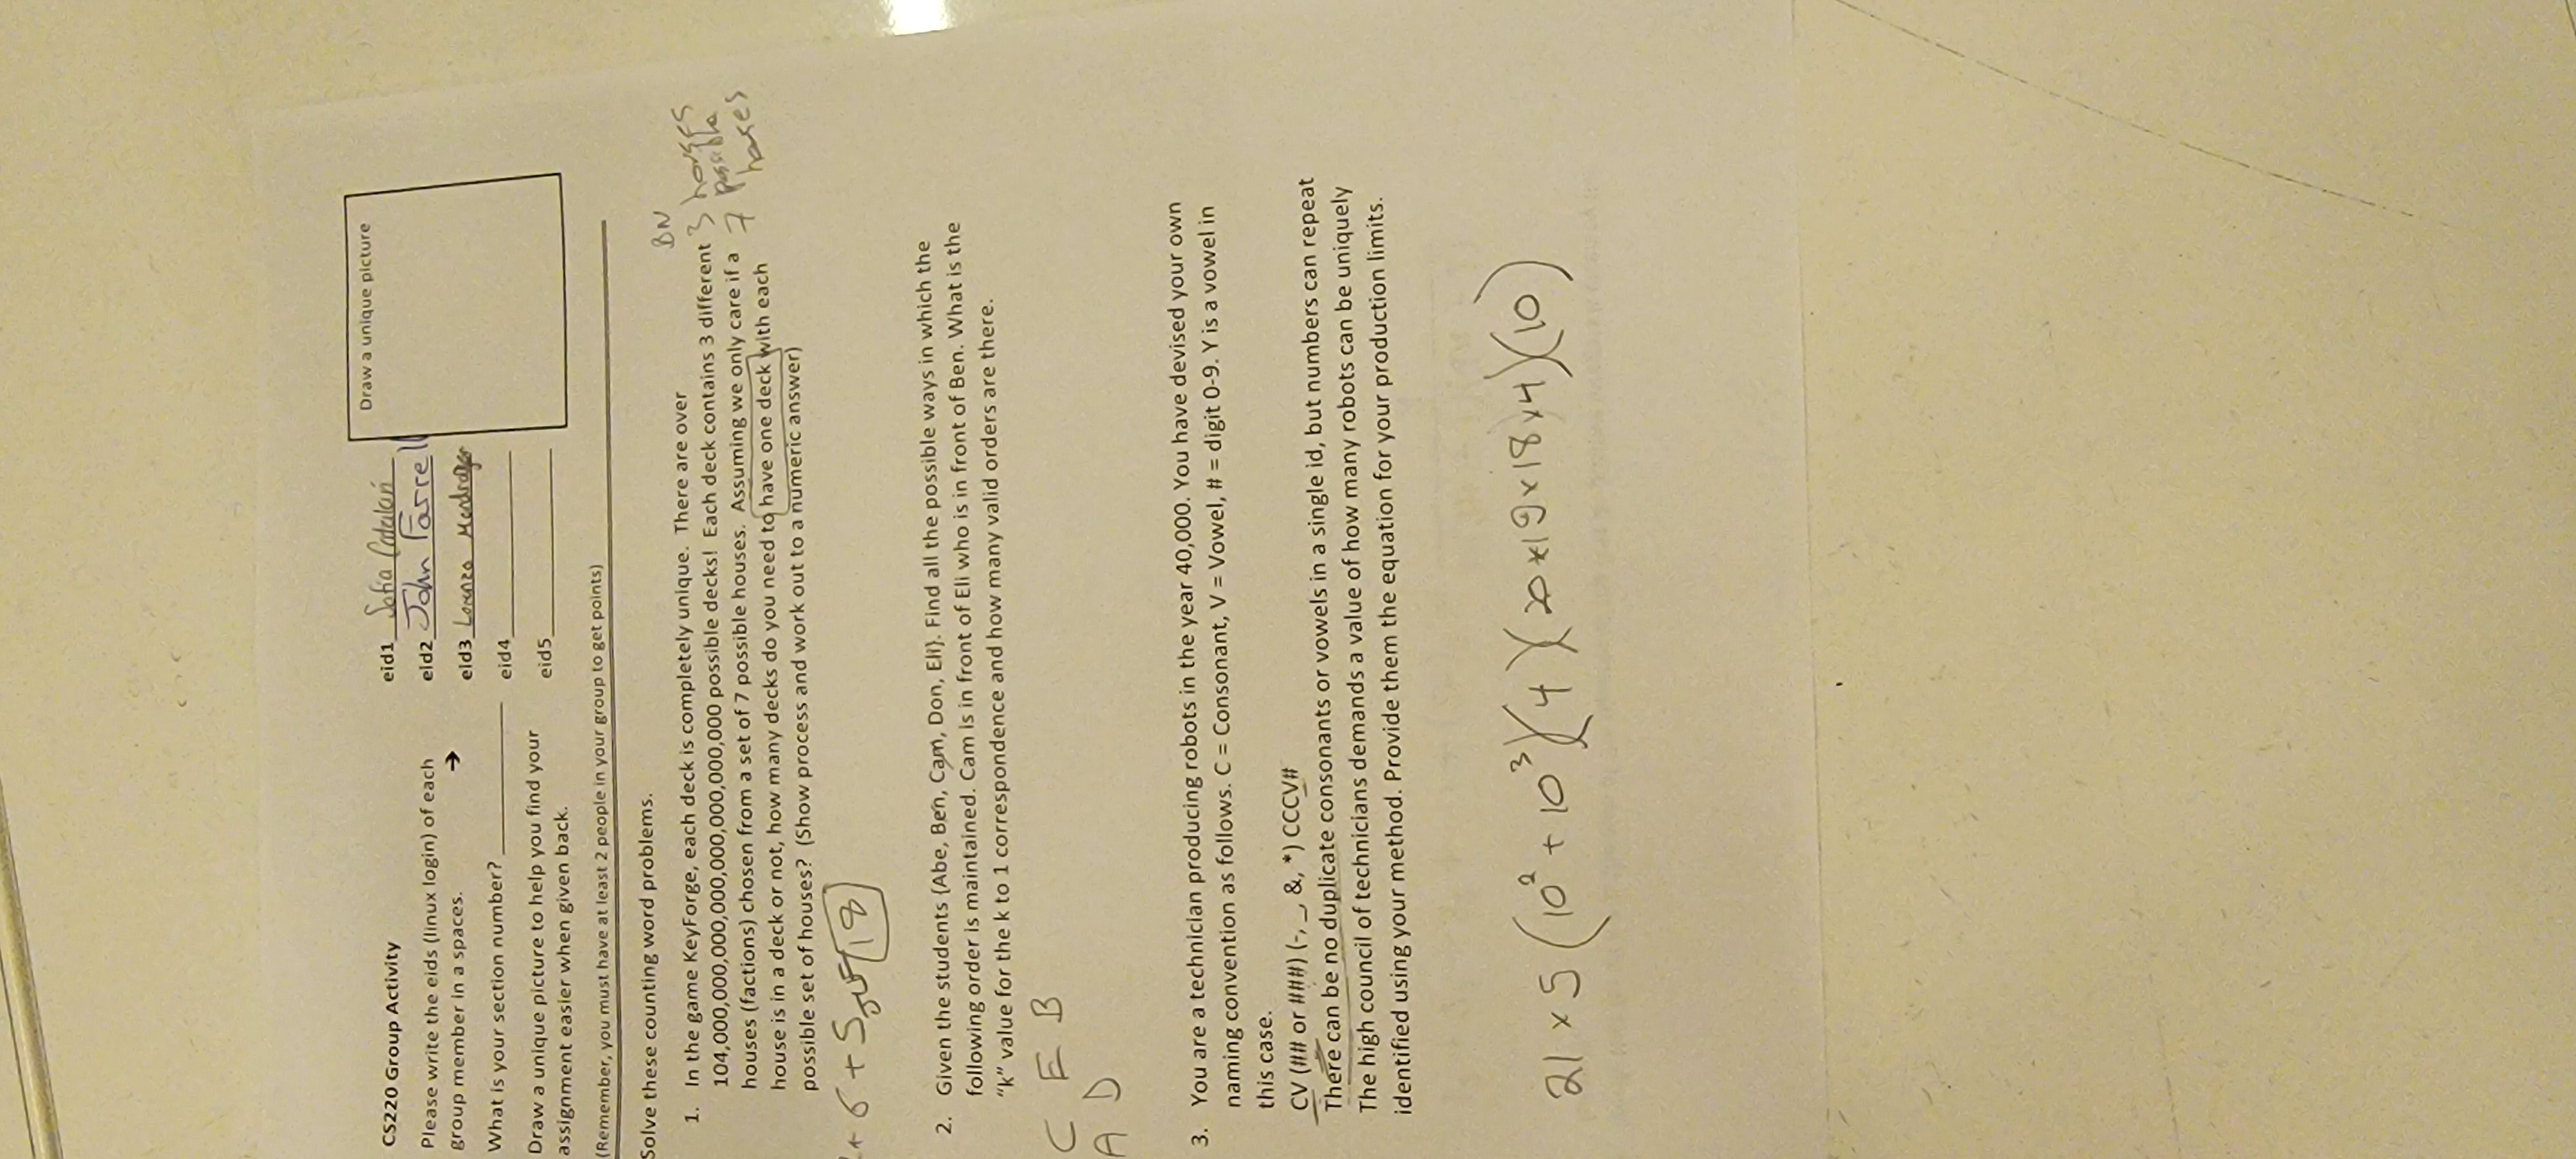 CS220 Group Activity
Please write the eids (linux login) of each
group member in a spaces. →
What is your section number?
Draw a unique picture to help you find your
assignment easier when given back.
eid1 Sofia Catalan
eid2 John Farrell
eid3 Lorenzo
eid4
eid5
Draw a unique picture
(Remember, you must have at least 2 people in your group to get points)
Solve these counting word problems.
1. In the game KeyForge, each deck is completely unique. There are over
104,000,000,000,000,000,000,000,000 possible decks! Each deck contains 3 different
houses (factions) chosen from a set of 7 possible houses. Assuming we only care if a
house is in a deck or not, how many decks do you need to have one deck with each
possible set of houses? (Show process and work out to a numeric answer)
BN
3 houses
7 possible
houses
+ 6 + 5 18
2. Given the students {Abe, Ben, Cam, Don, Eli}. Find all the possible ways in which the
following order is maintained. Cam is in front of Eli who is in front of Ben. What is the
"k" value for the k to 1 correspondence and how many valid orders are there.
C E B
A D
3. You are a technician producing robots in the year 40,000. You have devised your own
naming convention as follows. C = Consonant, V = Vowel, # = digit 0-9. Y is a vowel in
this case.
CV (## or ###) (-, _, &, *) CCCV#
There can be no duplicate consonants or vowels in a single id, but numbers can repeat
The high council of technicians demands a value of how many robots can be uniquely
identified using your method. Provide them the equation for your production limits.
21 x 5 (10² + 10³)(4)(20 x 19 x 18 x 4)(10)